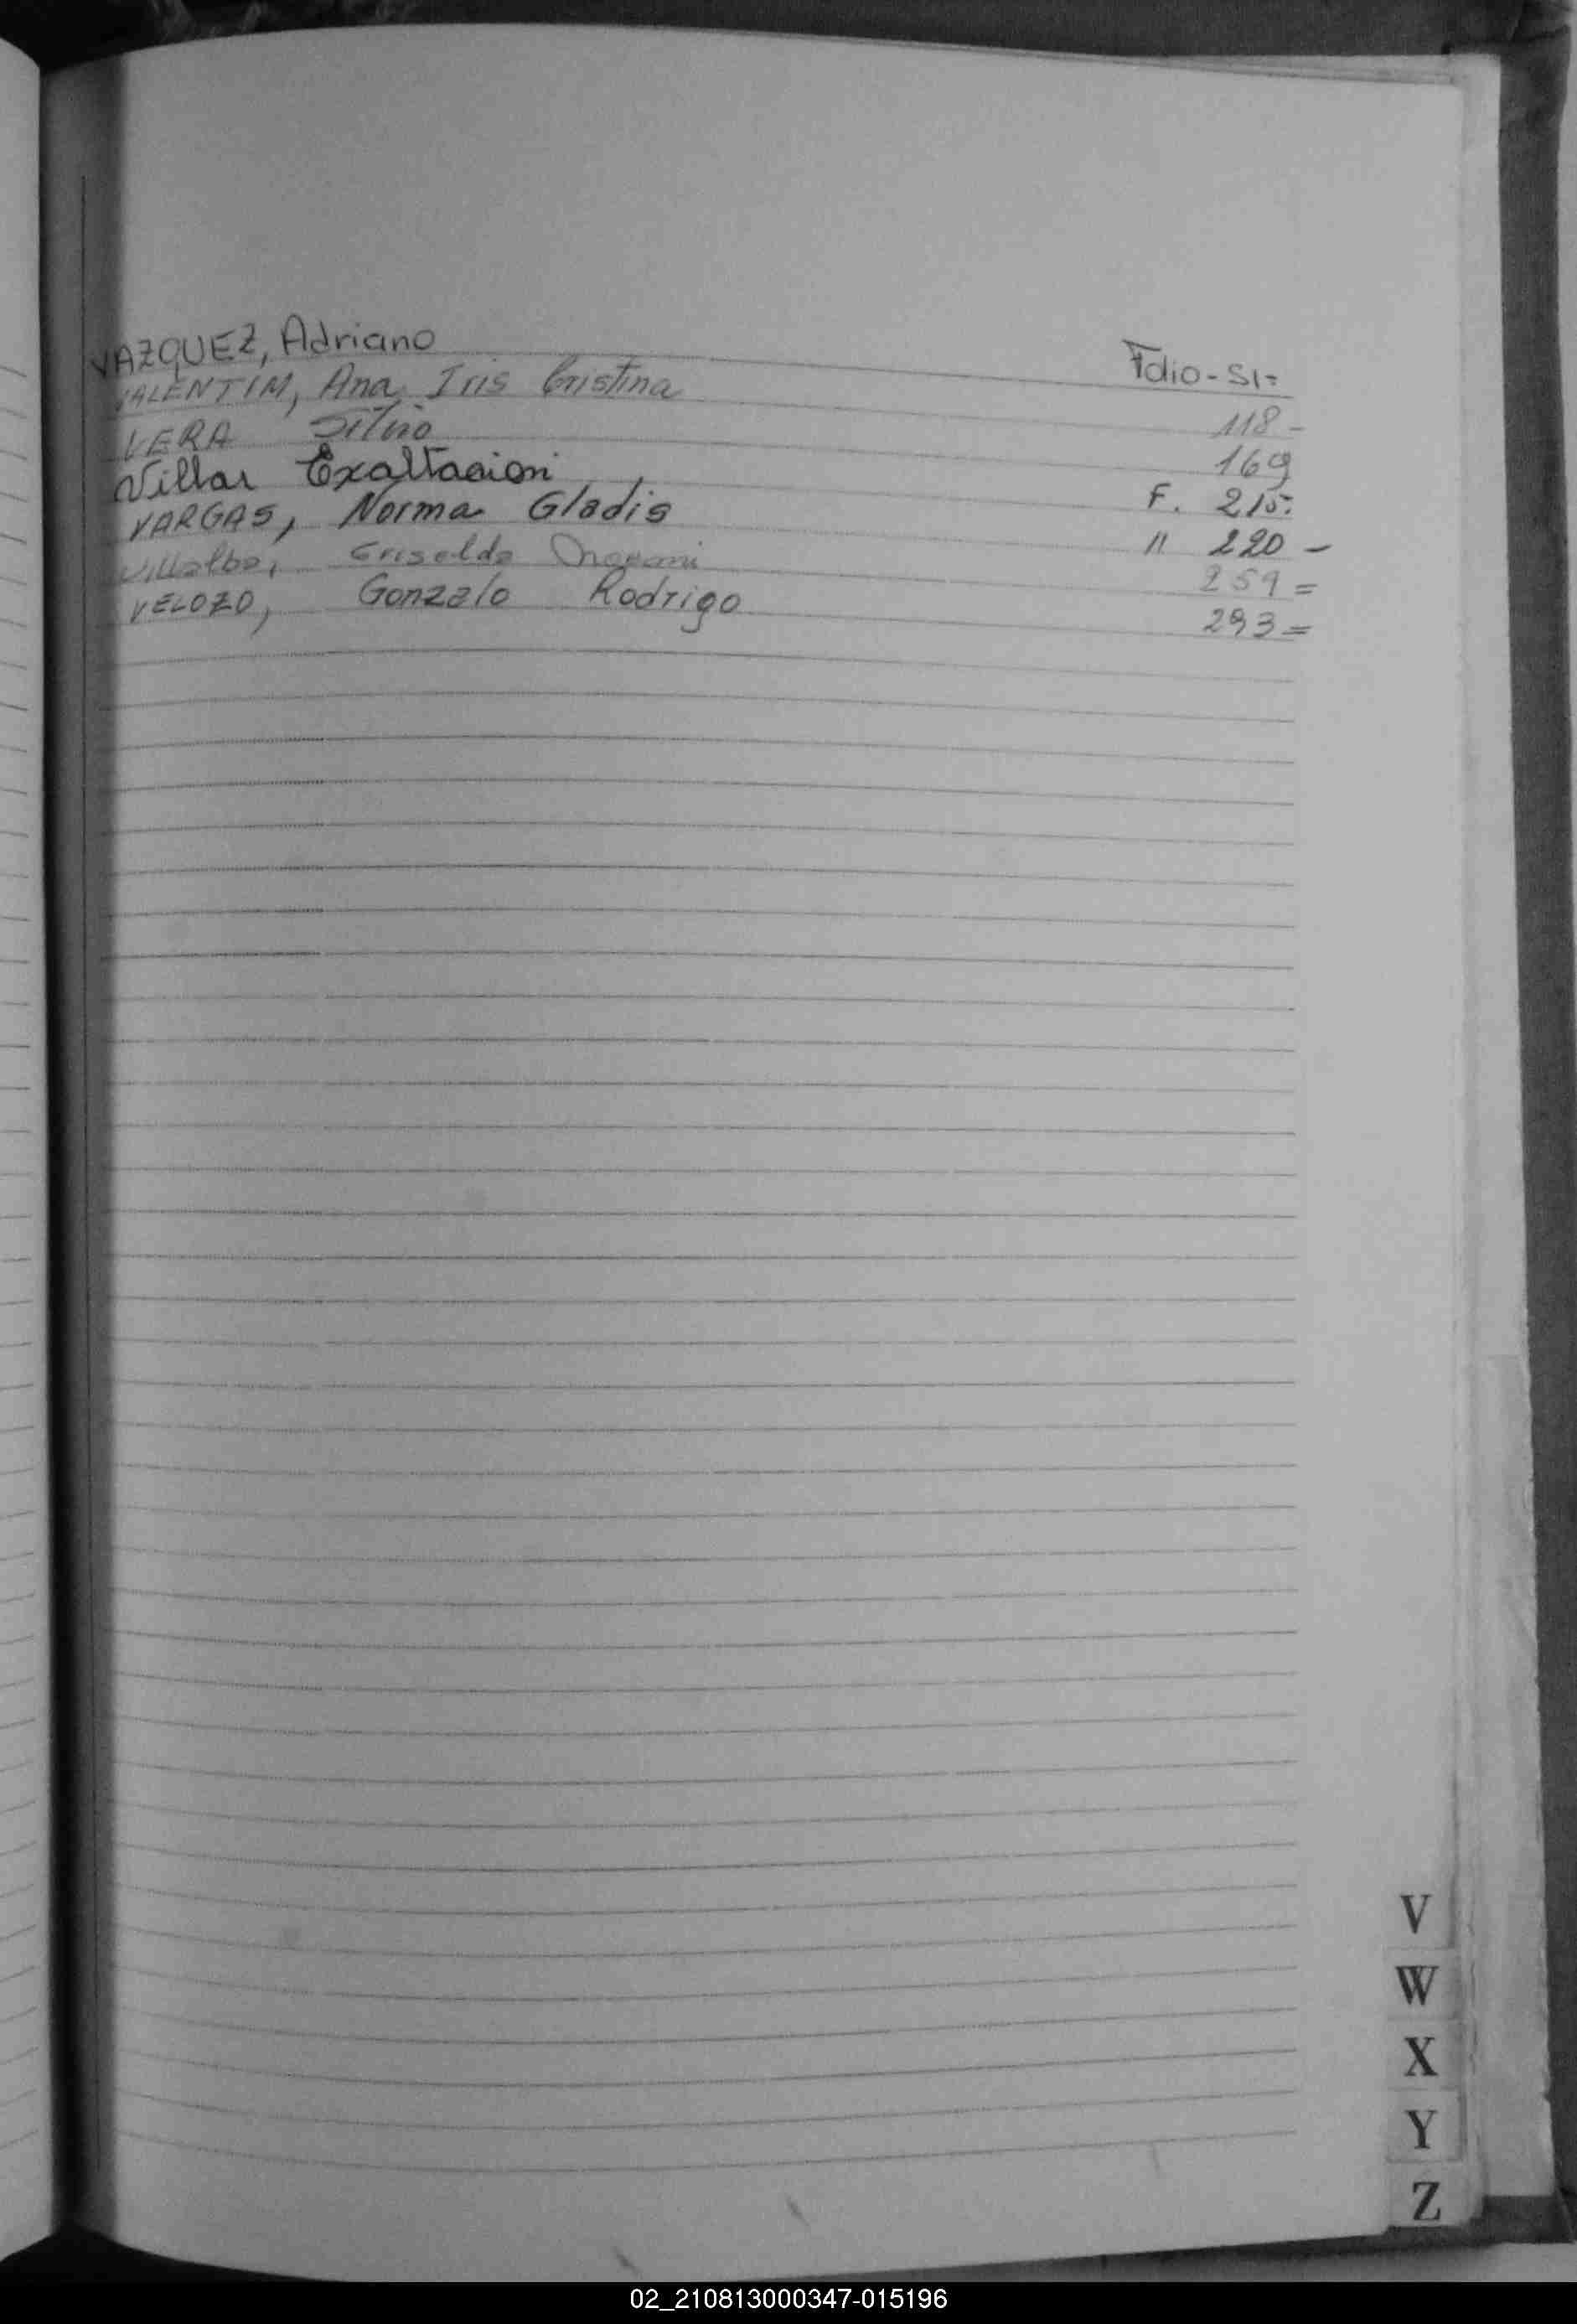 VAZQUEZ, Adriano Folio-51=
VALENTIM, Ana Iris Cristina 118-
VERA Silvio 169
Villar Exaltacion F. 215.
VARGAS, Norma Gladis " 220 -
Villalba, Griselda Noemi 259=
VELOZO, Gonzalo Rodrigo 293=
V
W
X
Y
Z
02_210813000347-015196